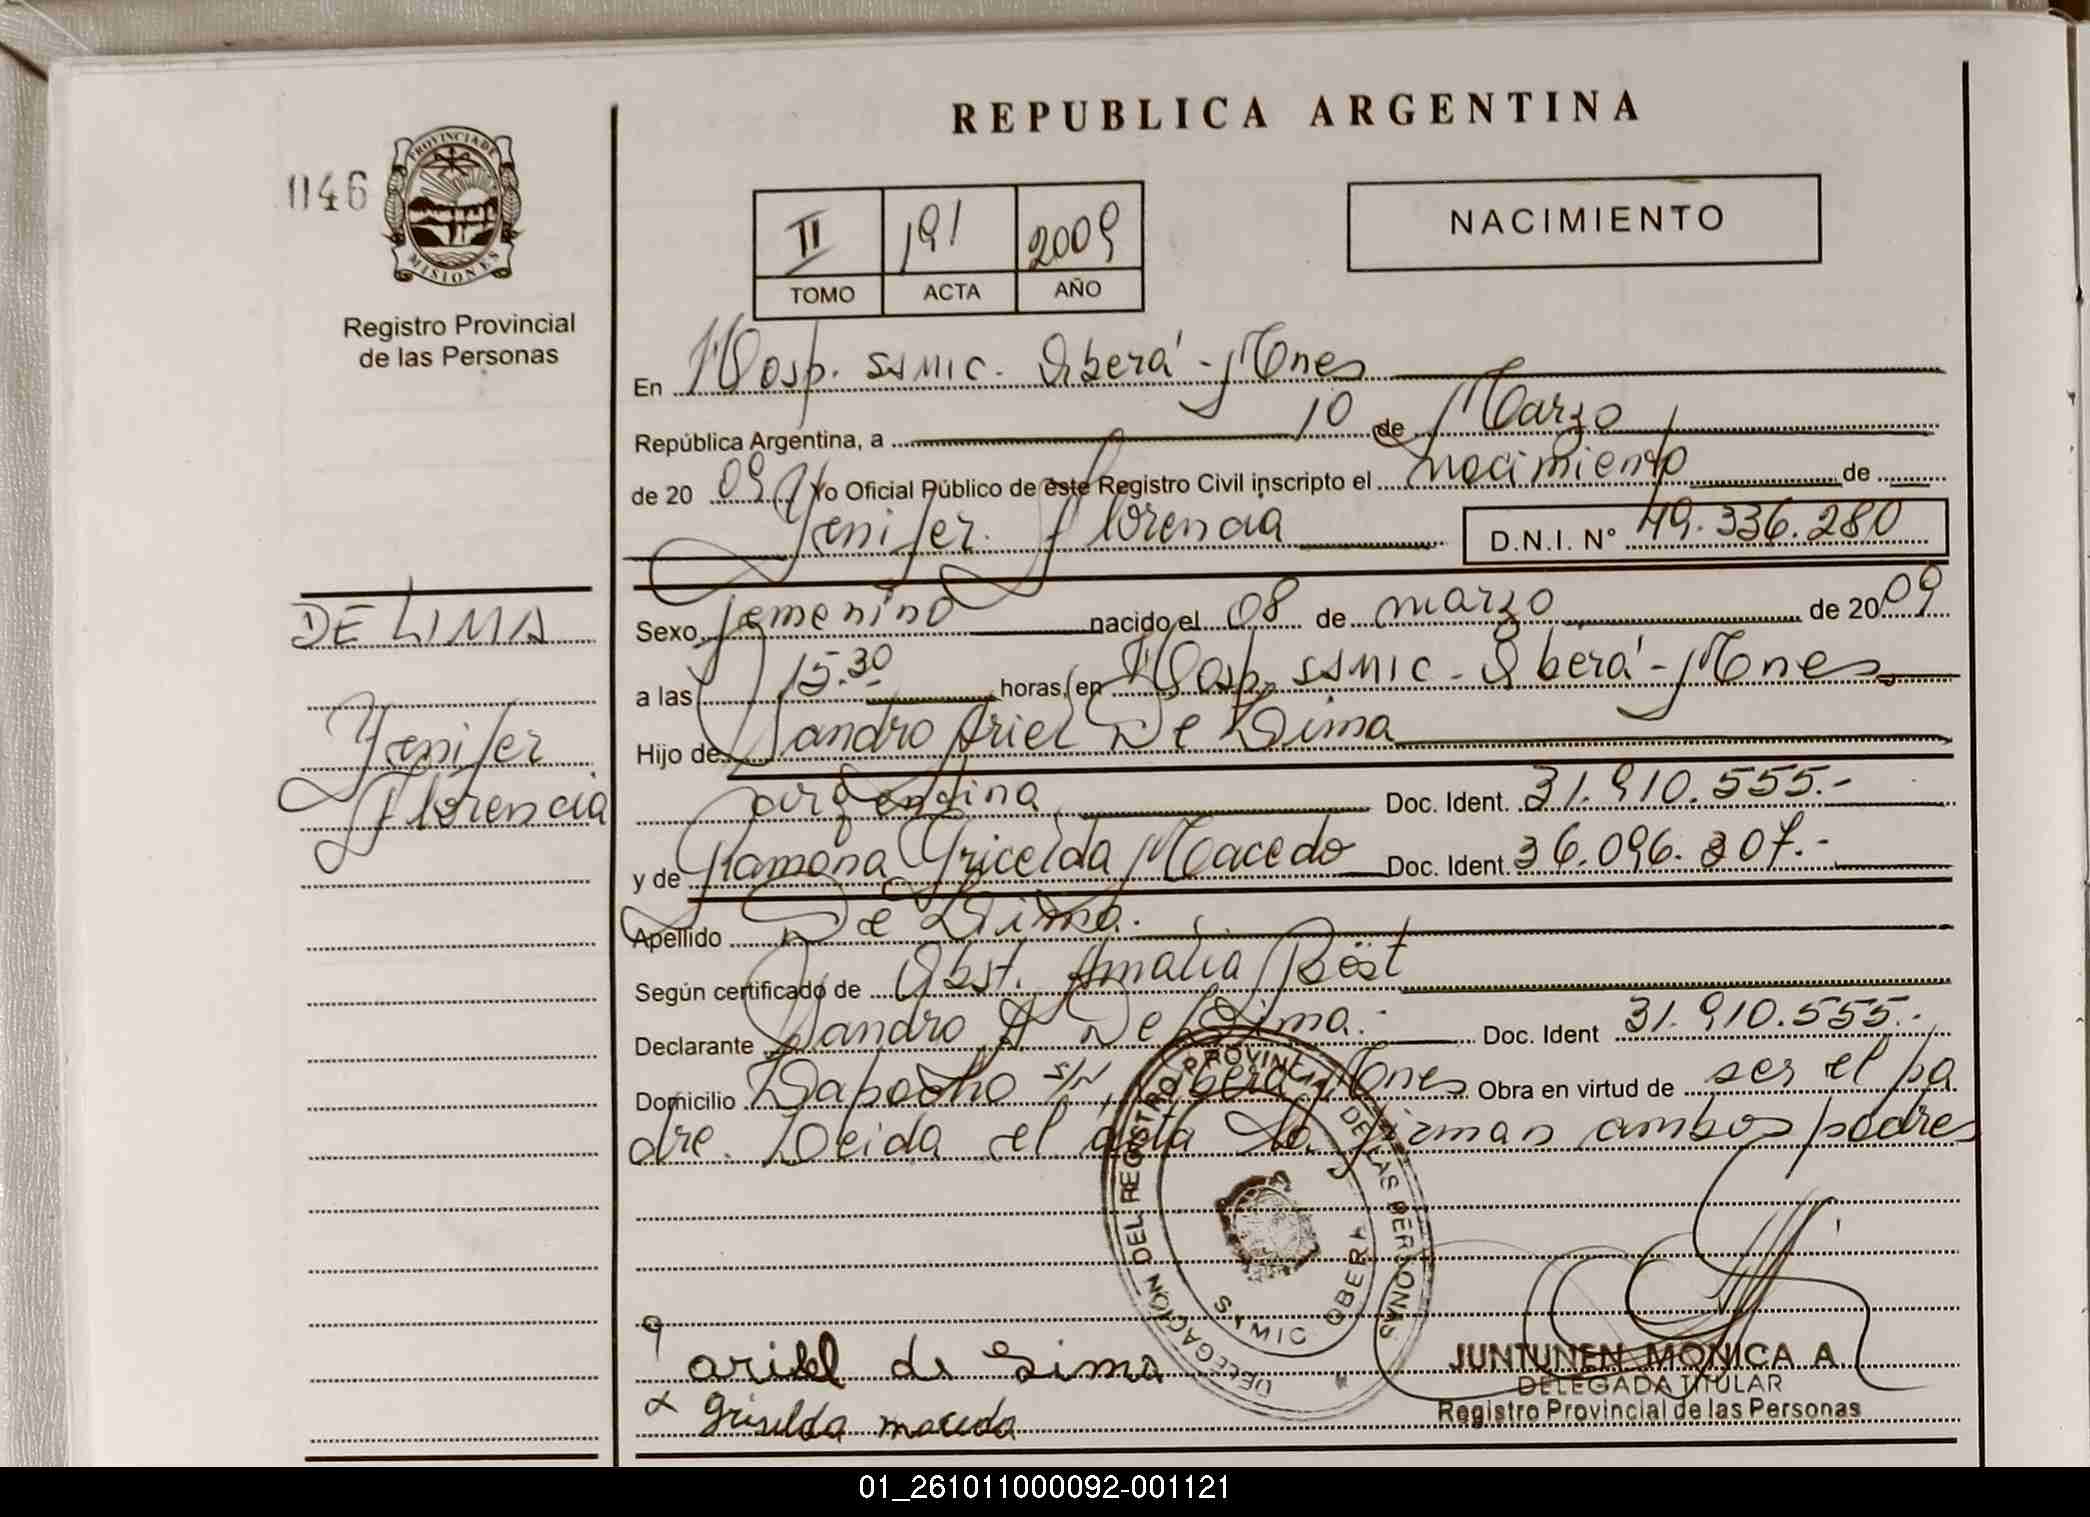 REPUBLICA ARGENTINA
1146
PROVINCIA DE
MISIONES
Registro Provincial
de las Personas
II 191 2009
TOMO ACTA AÑO
NACIMIENTO
En Hosp. SAMIC. Oberá - Mnes
República Argentina, a 10 de Marzo
de 20 09 Yo Oficial Público de este Registro Civil inscripto el nacimiento de
Yenifer Florencia D.N.I. N° 49.336.280
DE LIMA
Yenifer
Florencia
Sexo femenino nacido el 08 de marzo de 2009
a las 15.30 horas, en Hosp. SAMIC - Oberá - Mnes
Hijo de Sandro Ariel De Lima
argentina Doc. Ident. 31.910.555.-
y de Ramona Gricelda Macedo Doc. Ident. 36.096.307.-
Apellido De Lima.
Según certificado de Obst. Amalia Böst
Declarante Sandro A De Lima.- Doc. Ident 31.910.555.-
Domicilio s/n, Oberá Mnes Obra en virtud de ser el pa
dre. Leida el acta la firman ambos padres
DELEGACIÓN DEL REGISTRO PROVINCIAL DE LAS PERSONAS
SAMIC OBERA
ariel de Lima
Griselda macedo
JUNTUNEN MONICA A.
DELEGADA TITULAR
Registro Provincial de las Personas
01_261011000092-001121